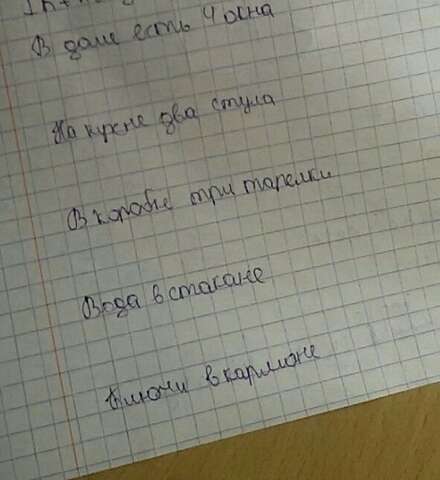 В доме есть 4 окна
На кухне два стула
В коробке три тарелки
Вода в стакане
Ключи в кармане